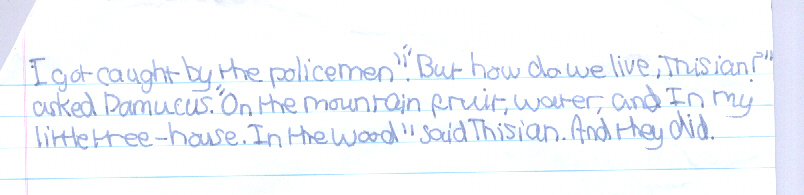 I got caught by the policemen". "But how do we live, Thisian?"
asked Damucus. "On the mountain fruit, water, and In my
little tree-house. In the wood" said Thisian. And they did.